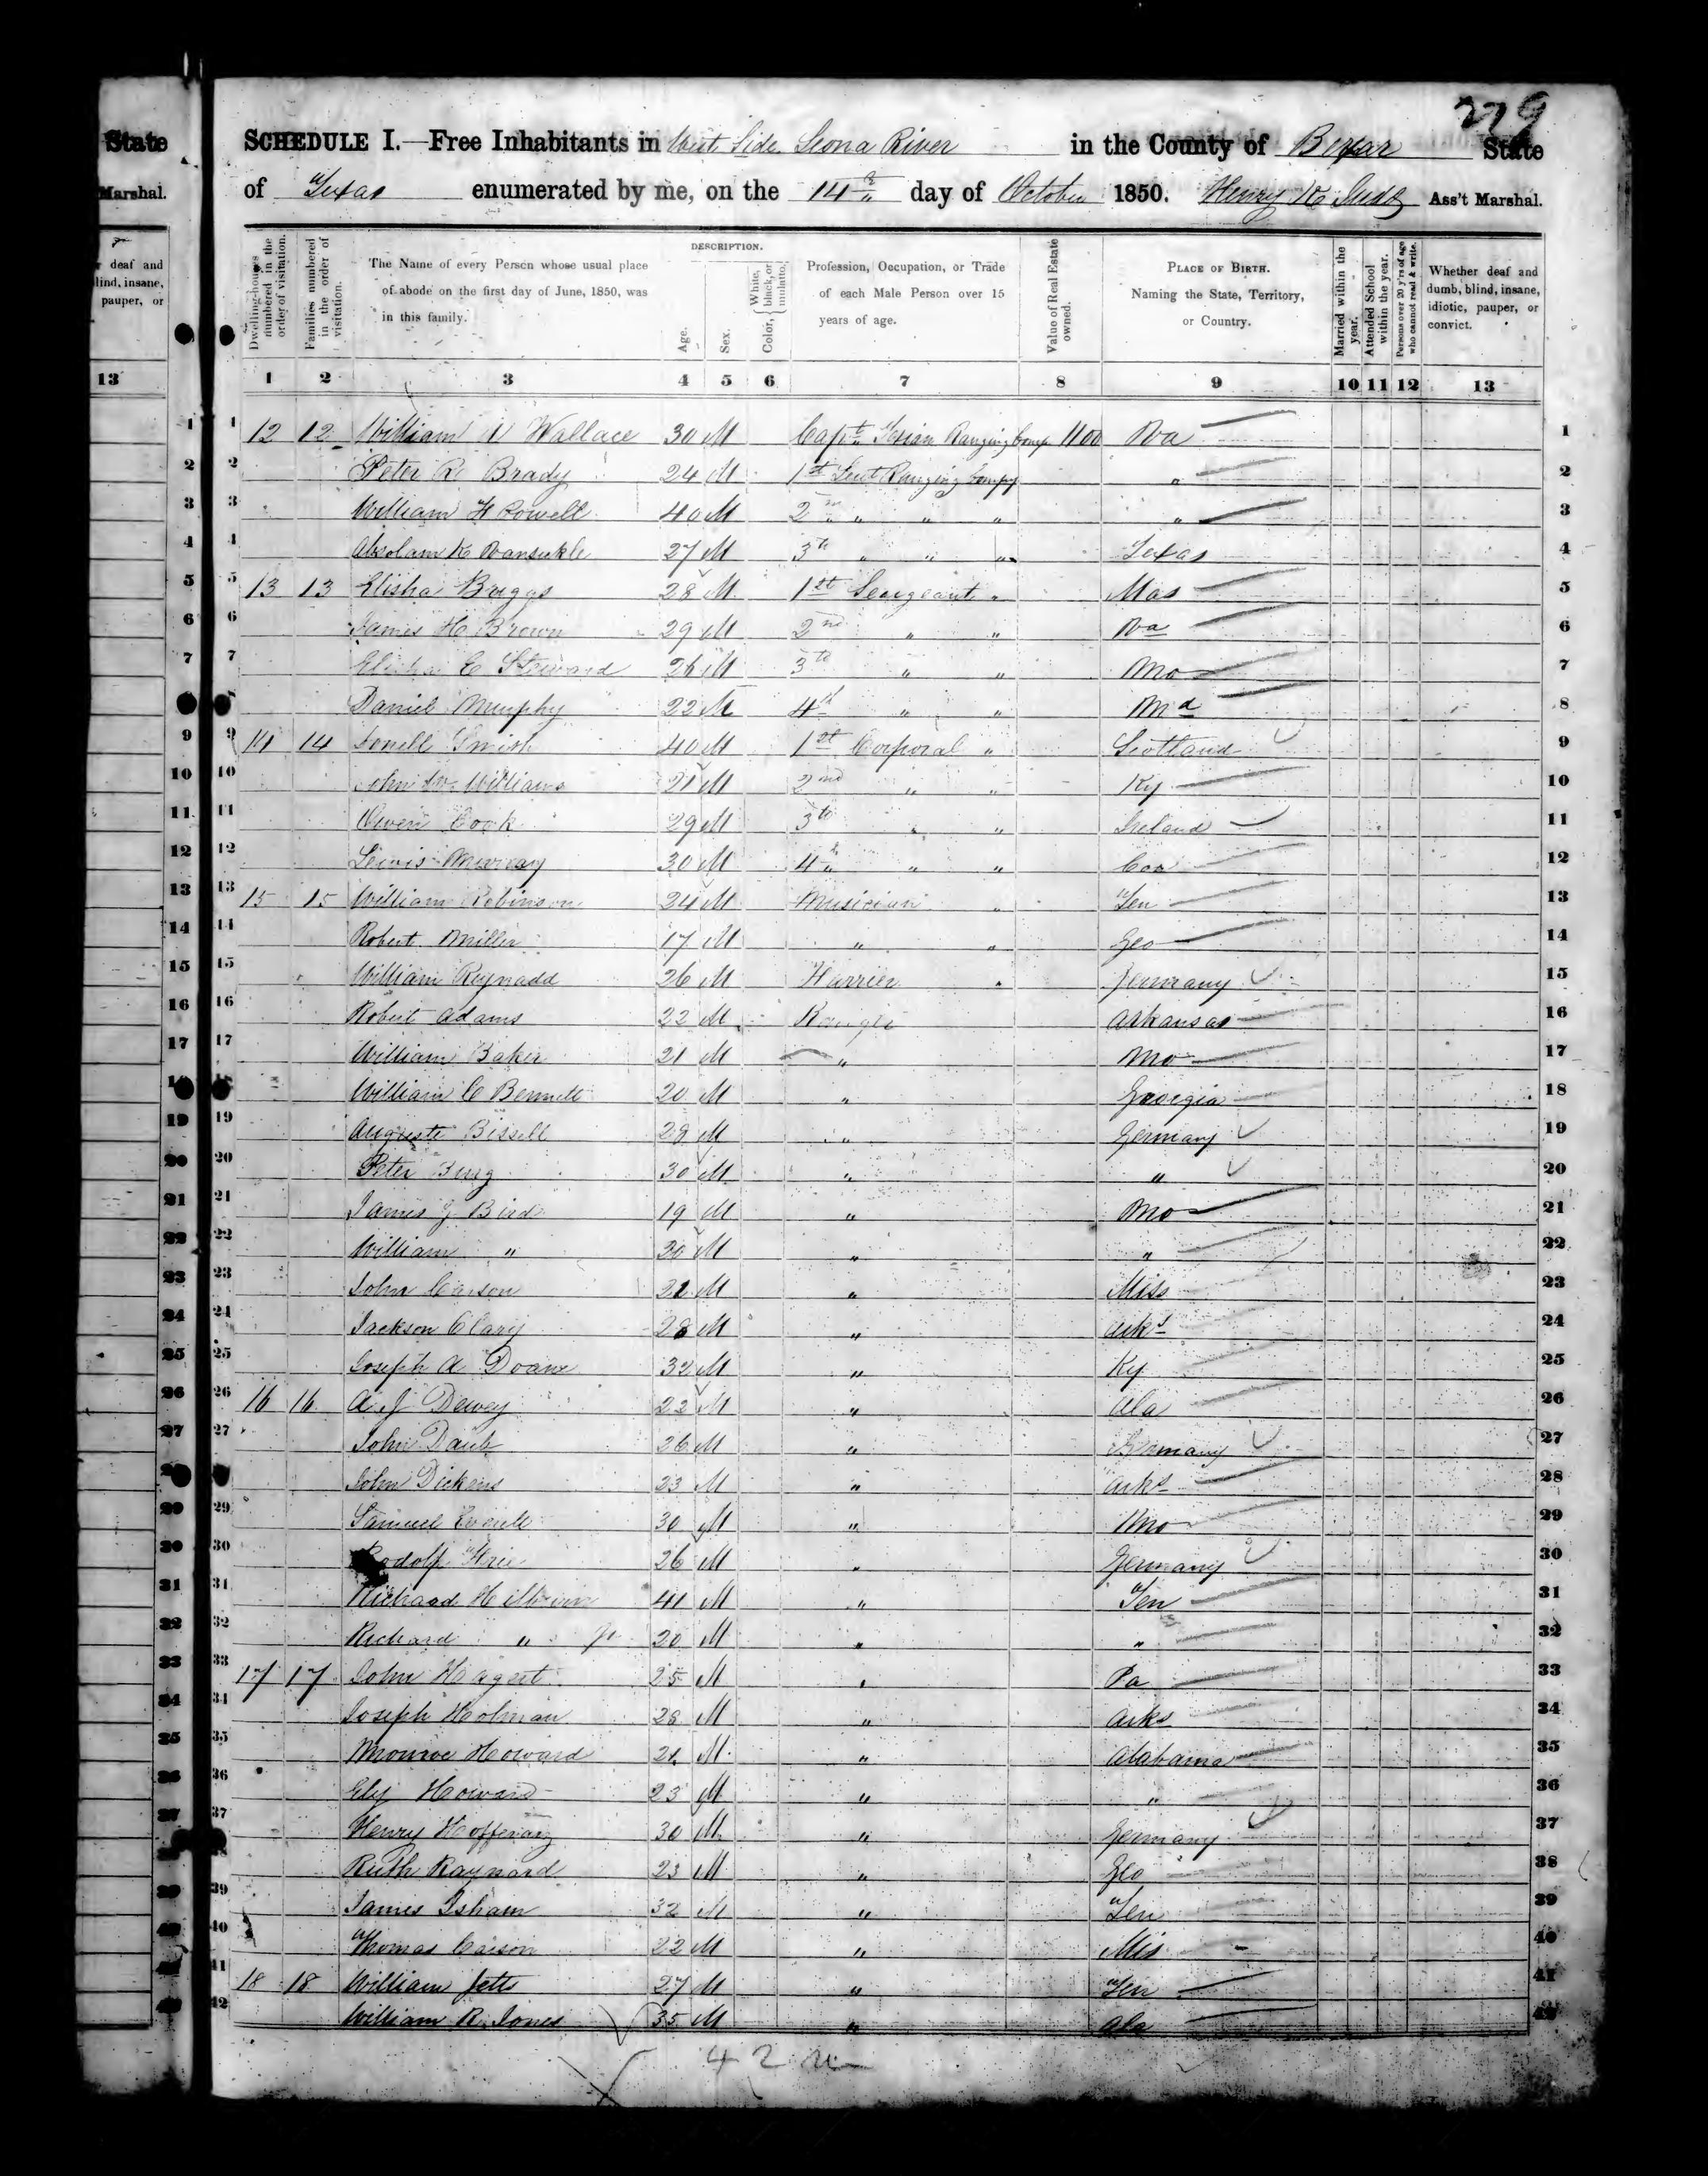 State
Marshal.
deaf and
blind, insane,
pauper, or
13
229
SCHEDULE I.—Free Inhabitants in West Side Leona River in the County of Bexar State
of Texas enumerated by me, on the 14th day of October 1850. Henry K Judd Ass't Marshal.
Dwelling-houses numbered in the order of visitation.
Families numbered in the order of visitation.
The Name of every Person whose usual place of abode on the first day of June, 1850, was in this family.
DESCRIPTION.
Age.
Sex.
Color, { White, black, or mulatto.
Profession, Occupation, or Trade of each Male Person over 15 years of age.
Value of Real Estate owned.
PLACE OF BIRTH. Naming the State, Territory, or Country.
Married within the year.
Attended School within the year.
Persons over 20 y'rs of age who cannot read & write.
Whether deaf and dumb, blind, insane, idiotic, pauper, or convict.
1 2 3 4 5 6 7 8 9 10 11 12 13
1 12 12 William Wallace 30 M Capt Texian Ranging Comp 1100 Va 1
2 Peter R Brady 24 M 1st Leut Ranging Compy " 2
3 William H Powell 40 M 2nd " " " " 3
4 Absolam K Vansickle 27 M 3th " " " Texas 4
5 13 13 Elisha Briggs 28 M 1st Seargeant " Mas 5
6 James H Brown 29 M 2nd " " Va 6
7 Elisha C Steward 26 M 3th " " Mo 7
8 Daniel Murphy 22 M 4th " " Md 8
9 14 14 Smith 40 M 1st Corporal " Scotland 9
10 John Williams 21 M 2nd " " Ky 10
11 Owen Cook 29 M 3th " " Ireland 11
12 Lewis Murray 30 M 4th " " 12
13 15 15 William Robinson 24 M Musician " Ten 13
14 Robert Miller 17 M " " Geo 14
15 William Reynadd 26 M Farrier " Germany 15
16 Robert Adams 22 M Arkansas 16
17 William Baker 21 M " Mo 17
18 William C Bennett 20 M " Georgia 18
19 Auguste Bissell 28 M " Germany 19
20 Peter Burg 30 M " " 20
21 James G Bird 19 M " Mo 21
22 William " 30 M " " 22
23 John Carson 21 M " Miss 23
24 Jackson Clary 28 M " Arks 24
25 Joseph A Doane 32 M " Ky 25
26 16 16 A J Dewey 23 M " Ala 26
27 John Daub 26 M " Germany 27
28 John Dickens 23 M " Arks 28
29 Samuel Everett 30 M " Mo 29
30 Rodolf 26 M " Germany 30
31 Richard Hillbrown 41 M " Ten 31
32 Richard " Jr 20 M " " 32
33 17 17 John Hagert 25 M " Pa 33
34 Joseph Holman 28 M " Arks 34
35 Monroe Howard 21 M " Alabama 35
36 Ely Howard 23 M " " 36
37 Henry 30 M " Germany 37
38 Ruth Raynard 23 M " Geo 38
39 James Isham 32 M " Ten 39
40 Thomas Carson 22 M " Mis 40
41 18 18 William Jetts 27 M " Ten 41
42 William R. Jones 35 M " Ala 42
42 m